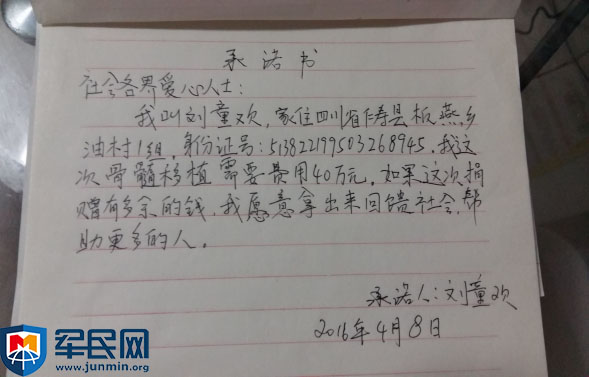 承诺书
社会各界爱心人士：
我叫刘童欢，家住四川省仁寿县板燕乡
油村1组，身份证号：513822199503268945，我这
次骨髓移植需要费用40万元，如果这次捐
赠有多余的钱，我愿意拿出来回馈社会，帮
助更多的人。
承诺人：刘童欢
2016年4月8日
军民网
www.junmin.org